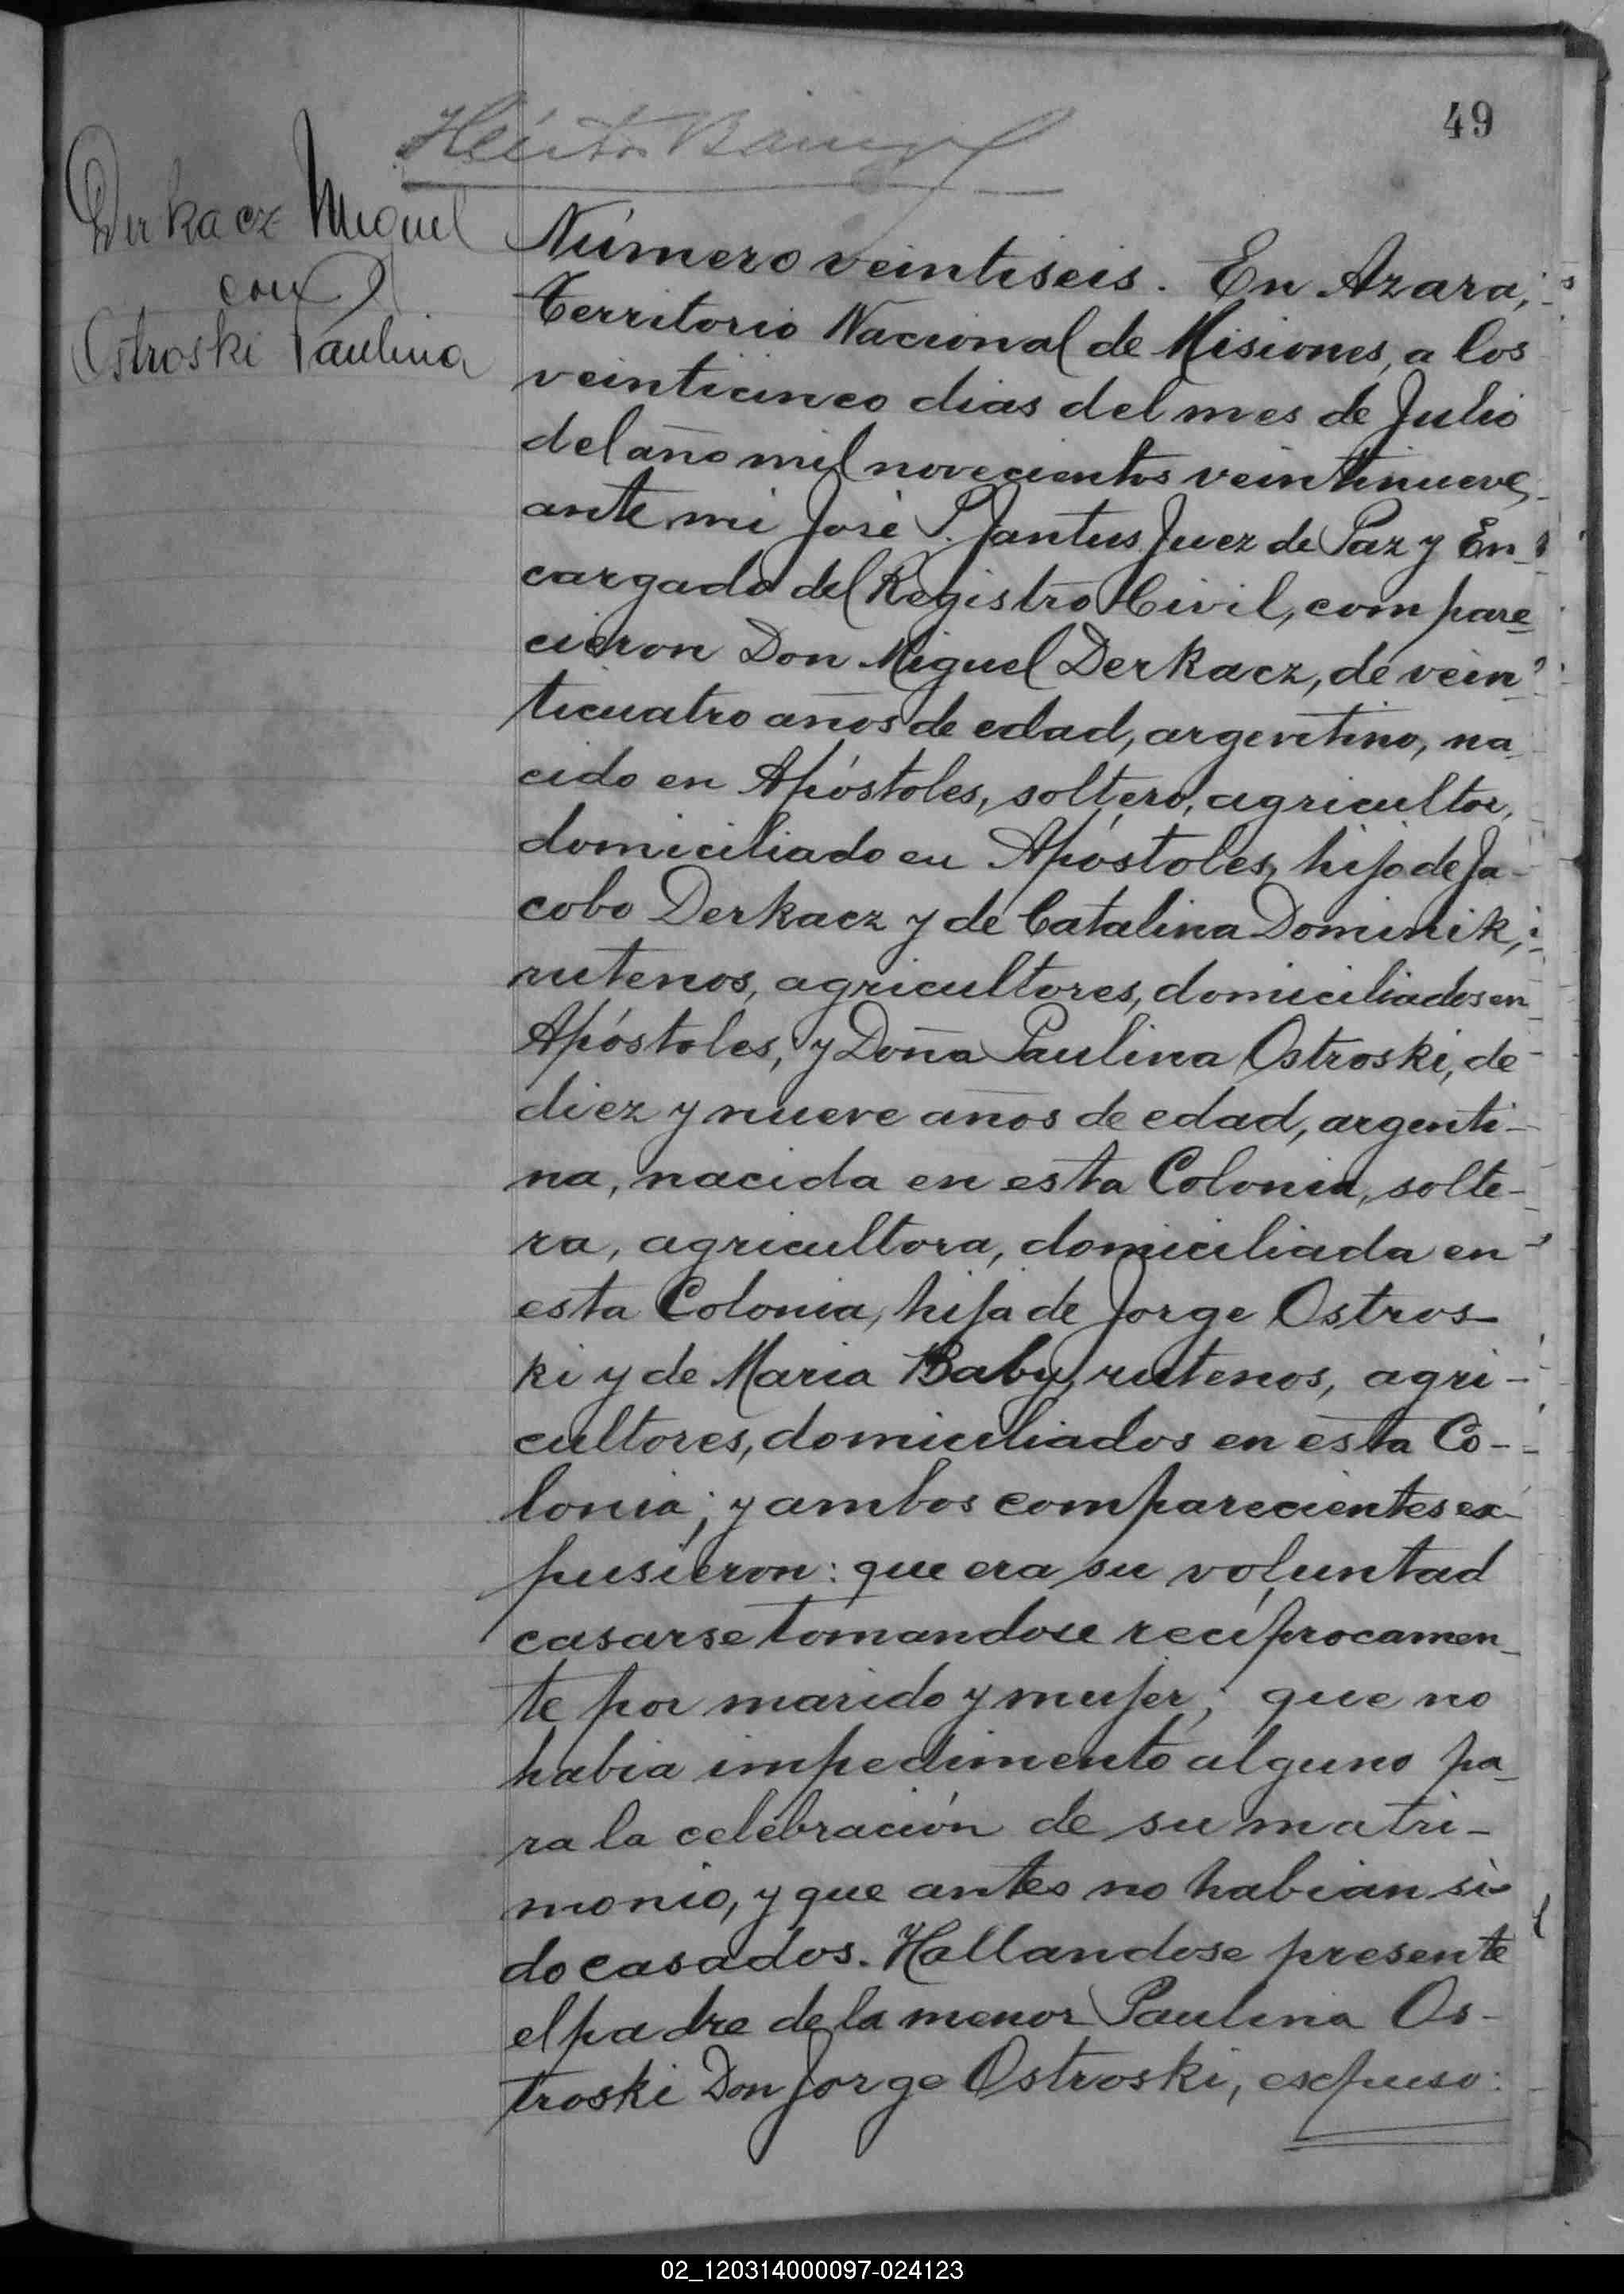 49
Derkacz Miguel
con
Ostroski Paulina
Número veintiseis. En Azara,
Territorio Nacional de Misiones, a los
veinticinco dias del mes de Julio
del año mil novecientos veintinueve,
ante mi José P. Jantus Juez de Paz y En-
cargado del Registro Civil, compare-
cieron Don Miguel Derkacz, de vein-
ticuatro años de edad, argentino, na-
cido en Apóstoles, soltero, agricultor,
domiciliado en Apóstoles, hijo de Ja-
cobo Derkacz y de Catalina Dominik,
rutenos, agricultores, domiciliados en
Apóstoles, y Doña Paulina Ostroski, de
diez y nueve años de edad, argenti-
na, nacida en esta Colonia, solte-
ra, agricultora, domiciliada en
esta Colonia, hija de Jorge Ostros-
ki y de Maria Baby, rutenos, agri-
cultores, domiciliados en esta Co-
lonia; y ambos comparecientes ex-
pusieron: que era su voluntad
casarse tomandose recíprocamen-
te por marido y mujer; que no
habia impedimento alguno pa-
ra la celebración de su matri-
monio, y que antes no habian si-
do casados. Hallandose presente
el padre de la menor Paulina Os-
troski Don Jorge Ostroski, expuso:
02_120314000097-024123